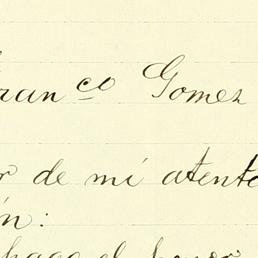 Franco Gomez
r de mi atento
ón:
hago el honor